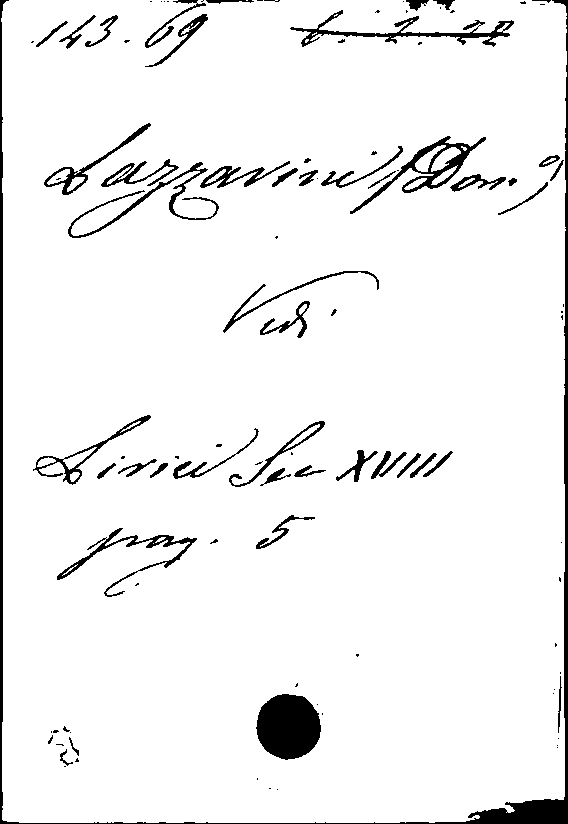 143.69 6. 2. 22
Lazzarini (Dom.º)
Vedi
Lirici Sec XVIII
pag. 5